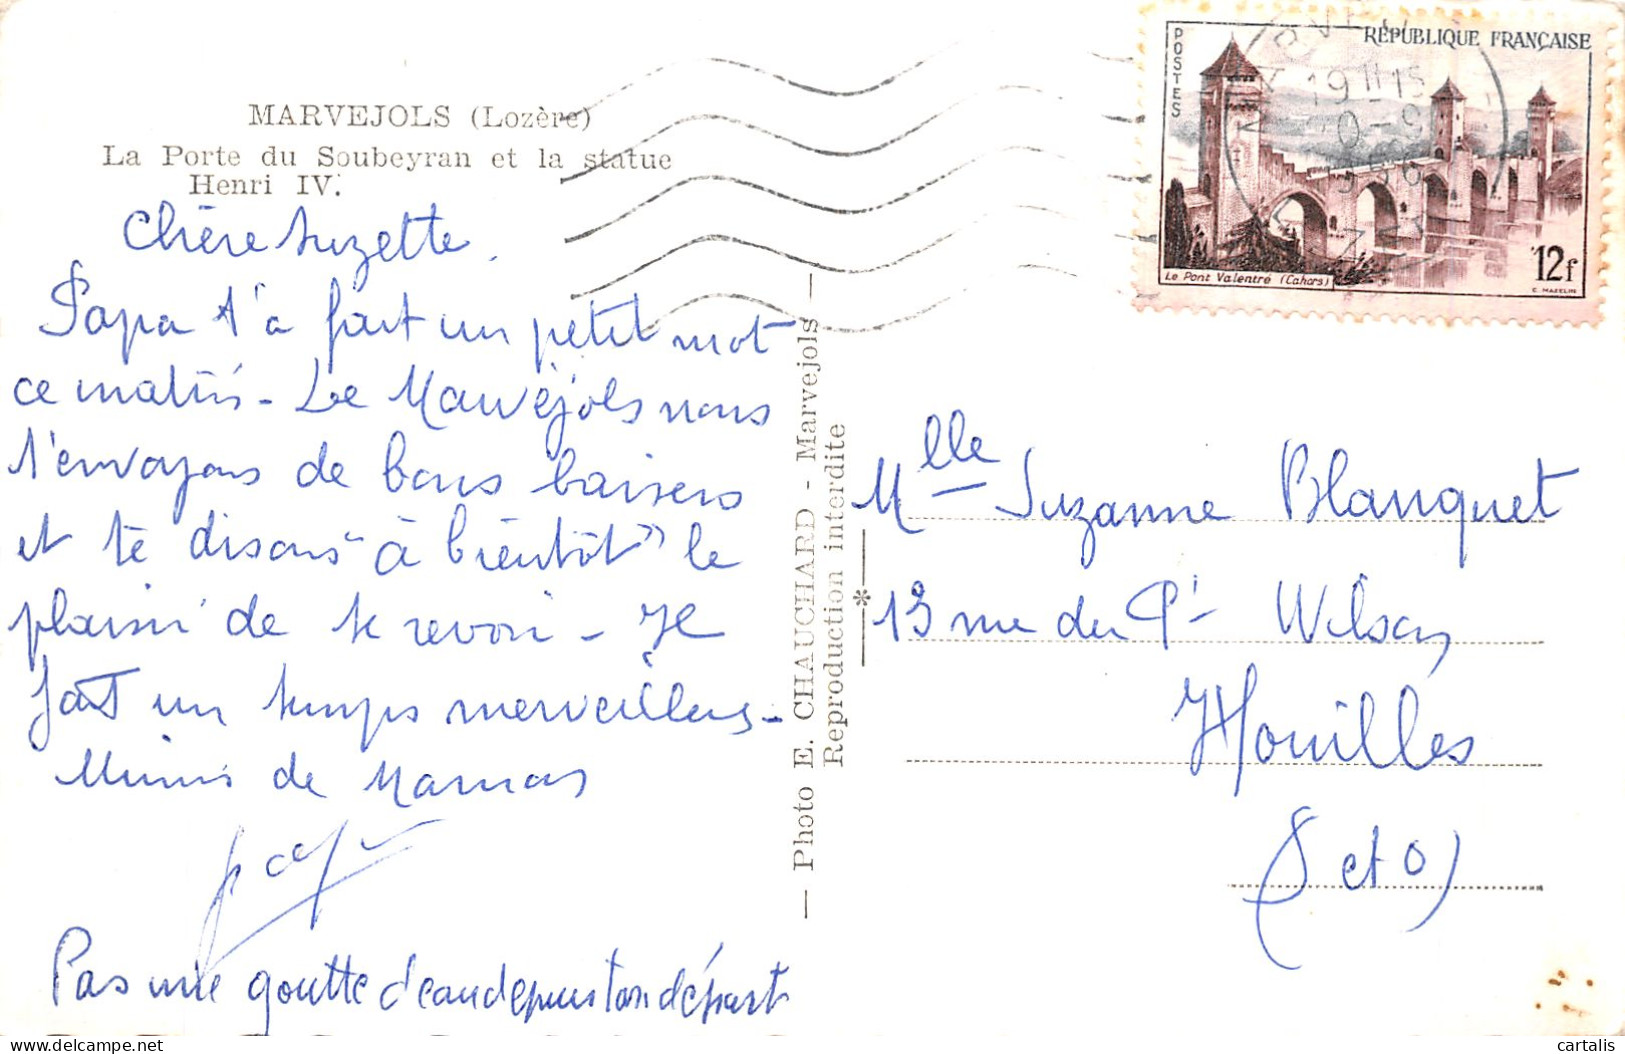 MARVEJOLS (Lozère)
La Porte du Soubeyran et la statue
Henri IV.
Chère Suzette.
Papa t'a fait un petit mot
ce matin - De Marvejols nous
t'envoyons de bons baisers
et te disons "à bientôt" le
plaisir de te revoir - Il
fait un temps merveilleux -
Mimis de Maman
Pas une goutte d'eau depuis ton départ
— Photo E. CHAUCHARD - Marvejols —
Reproduction interdite
*
POSTES
RÉPUBLIQUE FRANÇAISE
Le Pont Valentré (Cahors)
12f
C. MAZELIN
19 H 15
Mlle Suzanne Blanquet
13 rue du Pt Wilson
Houilles
(S et O)
cartalis